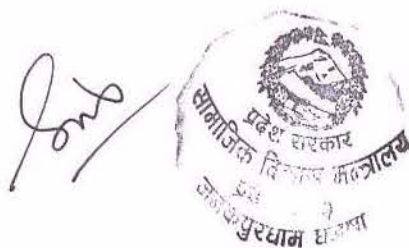 प्रदेश सरकार
सामाजिक विकास मन्त्रालय
जनकपुरधाम धनुषा